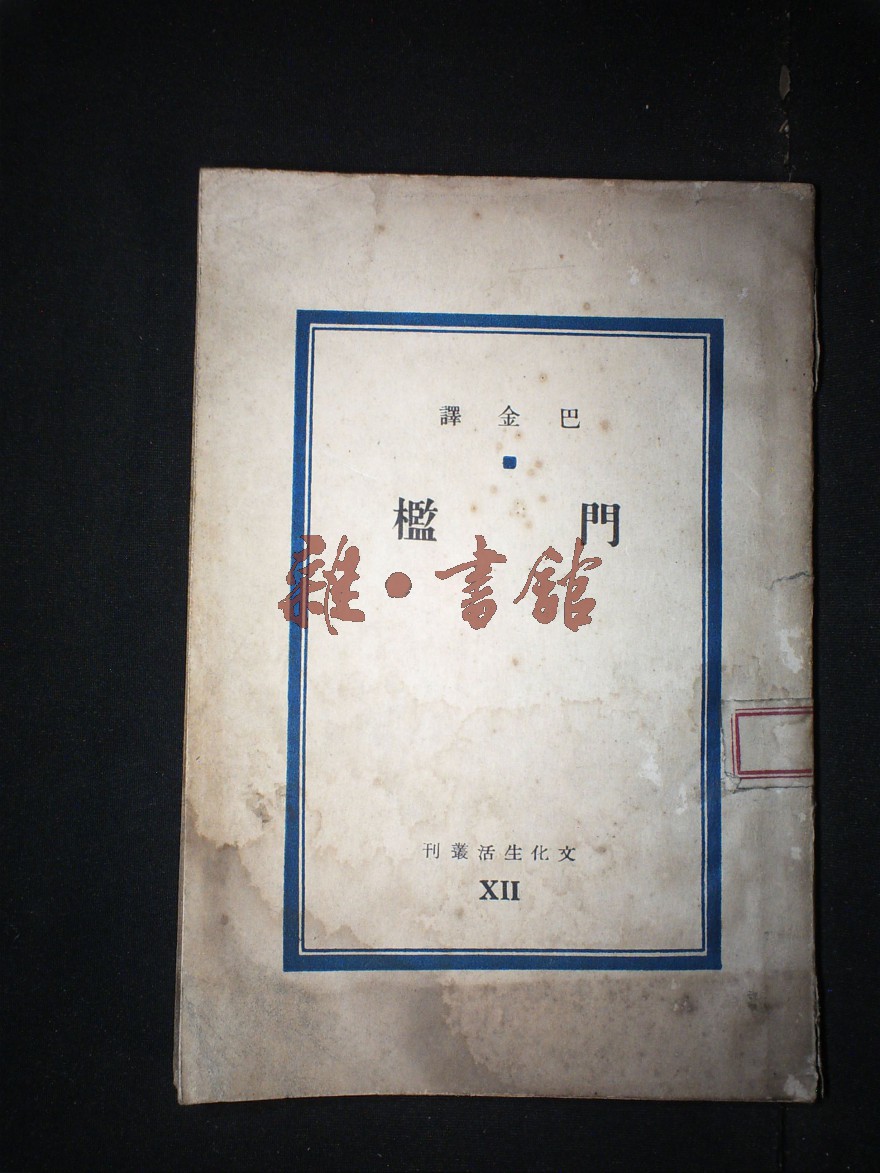 巴金譯
門檻
雜·書館
文化生活叢刊
XII